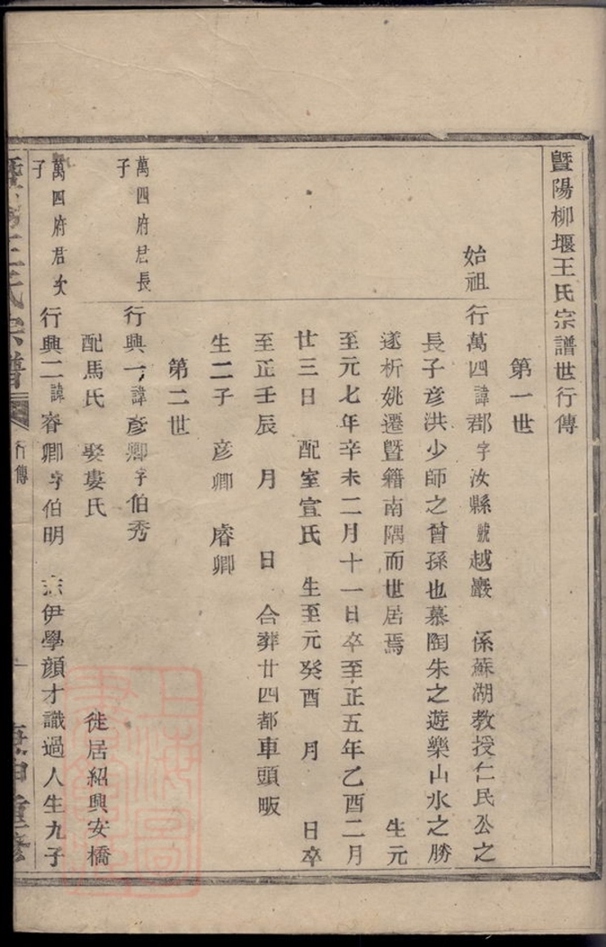 暨陽柳堰王氏宗譜世行傳
第一世
始祖 行萬四諱郡字汝縣號越巖 係蘇湖教授仁民公之
長子彥洪少師之曾孫也慕陶朱之遊樂山水之勝
遂析姚遷暨籍南隅而世居焉 生元
至元七年辛未二月十一日卒至正五年乙酉二月
廿三日 配室宣氏 生至元癸酉 月 日卒
至正壬辰 月 日 合葬廿四都車頭畈
生二子 彥卿 睿卿
第二世
萬四府君長子 行興一諱彥卿字伯秀
配馬氏 娶婁氏 徙居紹興安橋
萬四府君次子 行興二諱睿卿字伯明 志伊學顏才識過人生九子
王氏宗譜 行傳 一 庚申重修